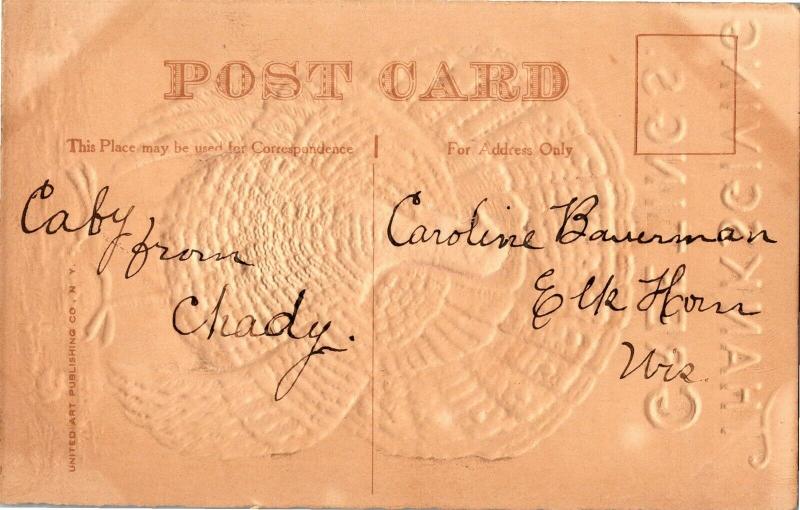 POST CARD
This Place may be used for Correspondence
For Address Only
Caby
from
Chady.
Caroline Bauerman
Elk Horn
Wis.
UNITED ART PUBLISHING CO., N.Y.
THANKSGIVING
GREETINGS.